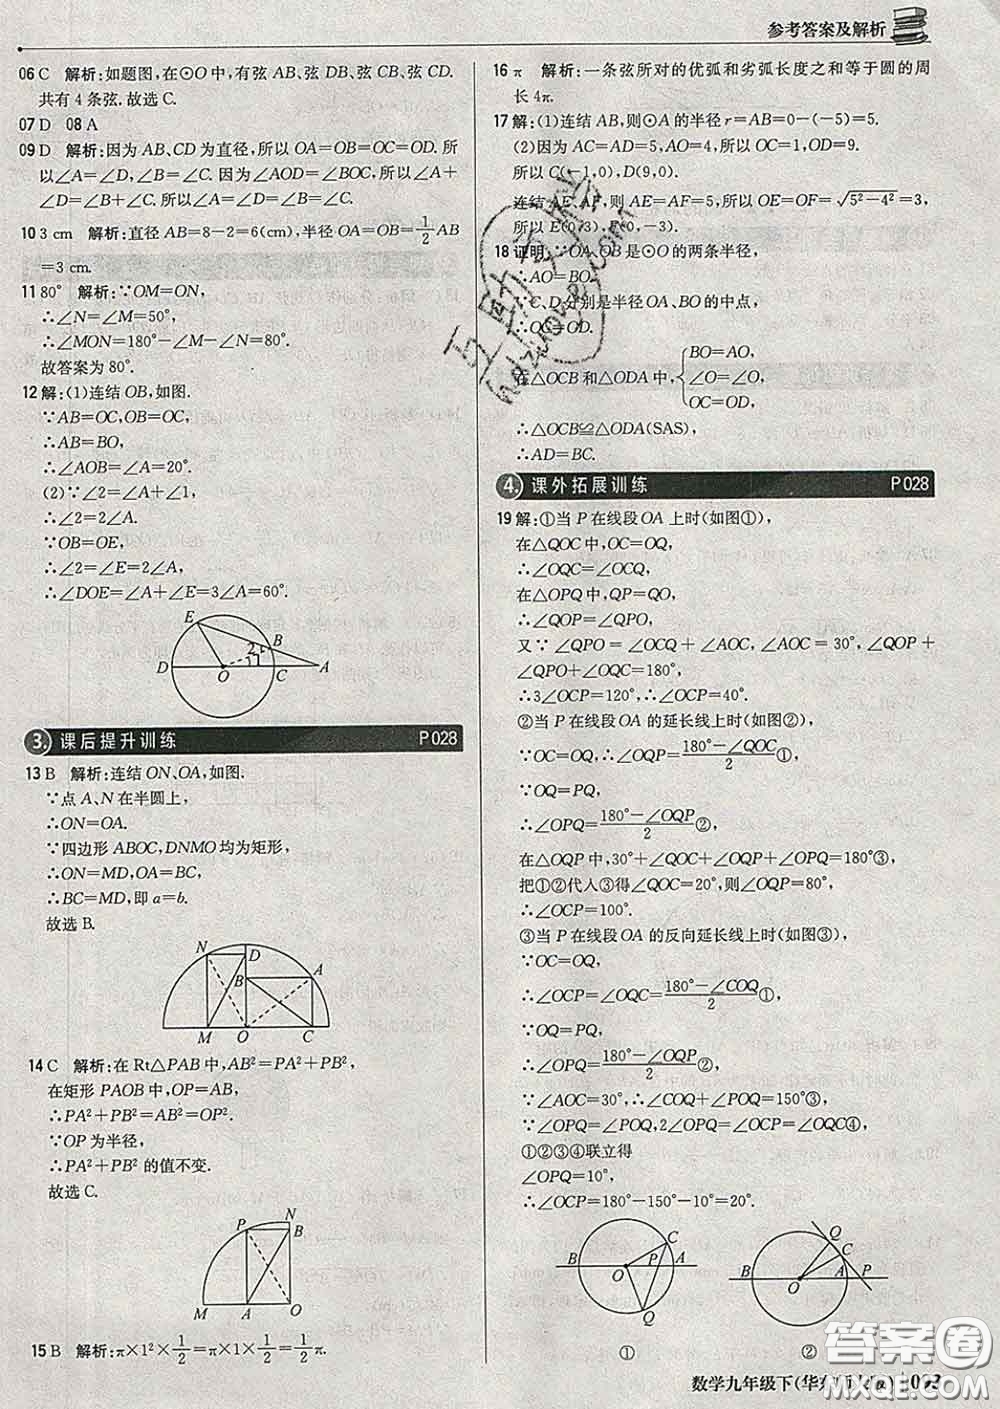 参考答案及解析
06 C 解析:如题图,在⊙O中,有弦AB、弦DB、弦CB、弦CD.
共有4条弦.故选C.
07 D 08 A
09 D 解析:因为AB、CD为直径,所以OA=OB=OC=OD.所
以∠A=∠D,∠B=∠C.因为∠AOD=∠BOC,所以∠A+
∠D=∠B+∠C.所以∠A=∠D=∠B=∠C.
10 3 cm 解析:直径AB=8-2=6(cm),半径OA=OB=1/2AB
=3 cm.
11 80° 解析:∵OM=ON,
∴∠N=∠M=50°,
∴∠MON=180°-∠M-∠N=80°.
故答案为80°.
12 解:(1)连结OB,如图.
∵AB=OC,OB=OC,
∴AB=BO,
∴∠AOB=∠A=20°.
(2)∵∠2=∠A+∠1,
∴∠2=2∠A.
∵OB=OE,
∴∠2=∠E=2∠A,
∴∠DOE=∠A+∠E=3∠A=60°.
E B 2 1 D O C A
3. 课后提升训练 P028
13 B 解析:连结ON、OA,如图.
∵点A、N在半圆上,
∴ON=OA.
∵四边形ABOC,DNMO均为矩形,
∴ON=MD,OA=BC,
∴BC=MD,即a=b.
故选B.
N D B A M O C
14 C 解析:在Rt△PAB中,AB²=PA²+PB²,
在矩形PAOB中,OP=AB,
∴PA²+PB²=AB²=OP².
∵OP为半径,
∴PA²+PB²的值不变.
故选C.
P N B M A O
15 B 解析:π×1²×1/2=π×1×1/2=1/2π.
16 π 解析:一条弦所对的优弧和劣弧长度之和等于圆的周
长4π.
17 解:(1)连结AB,则⊙A的半径r=AB=0-(-5)=5.
(2)因为AC=AD=5,所以OC=1,OD=9.
所以C(-1,0),D(9,0).
连结AE、AF,则AE=AF=5,所以OE=OF=√5²-4²=3,
所以E(0,3),F(0,-3).
18 证明:∵OA、OB是⊙O的两条半径,
∴AO=BO.
∵C、D分别是半径OA、BO的中点,
∴OC=OD.
在△OCB和△ODA中,{BO=AO,
∠O=∠O,
OC=OD,
∴△OCB≌△ODA(SAS),
∴AD=BC.
4. 课外拓展训练 P028
19 解:①当P在线段OA上时(如图①),
在△QOC中,OC=OQ,
∴∠OQC=∠OCQ,
在△OPQ中,QP=QO,
∴∠QOP=∠QPO,
又∵∠QPO=∠OCQ+∠AOC,∠AOC=30°,∠QOP+
∠QPO+∠OQC=180°,
∴3∠OCP=120°,∴∠OCP=40°.
②当P在线段OA的延长线上时(如图②),
∵OC=OQ,∴∠OQP=180°-∠QOC/2①,
∵OQ=PQ,
∴∠OPQ=180°-∠OQP/2②,
在△OQP中,30°+∠QOC+∠OQP+∠OPQ=180°③,
把①②代入③得∠QOC=20°,则∠OQP=80°,
∴∠OCP=100°.
③当P在线段OA的反向延长线上时(如图③),
∵OC=OQ,
∴∠OCP=∠OQC=180°-∠COQ/2①,
∵OQ=PQ,
∴∠OPQ=180°-∠OQP/2②,
∵∠AOC=30°,∴∠COQ+∠POQ=150°③,
∵∠OPQ=∠POQ,2∠OPQ=∠OQC④,
①②③④联立得
∠OPQ=10°,
∴∠OCP=180°-150°-10°=20°.
C B P A O Q
①
Q C B O A P
②
数学九年级下(华东师大版)
答案圈